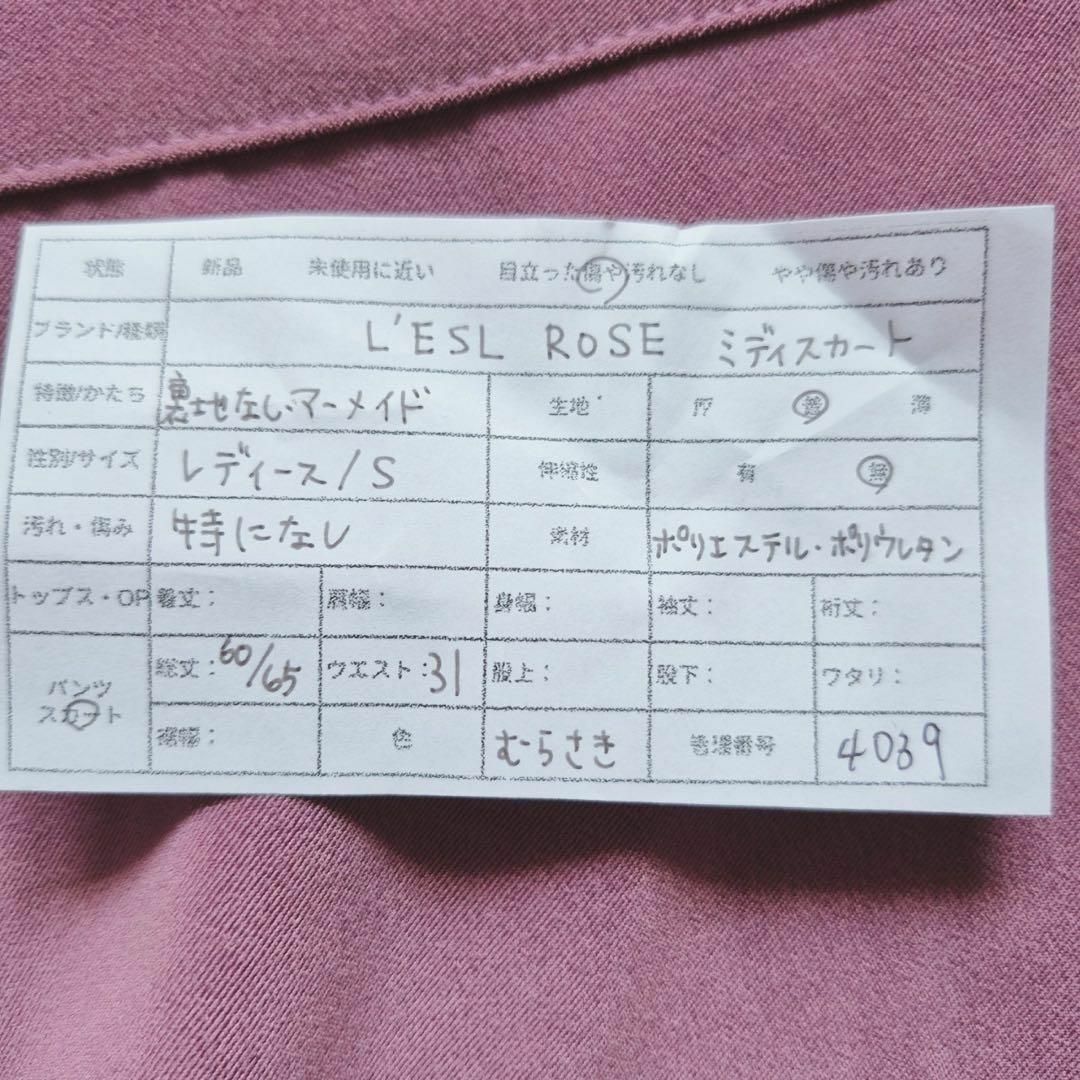 状態 新品 未使用に近い 目立った傷や汚れなし やや傷や汚れあり
ブランド/種類 L'ESL ROSE ミディスカート
特徴/かたち 裏地なし・マーメイド 生地 厚 普 薄
性別/サイズ レディース/S 伸縮性 有 無
汚れ・傷み 特になし 素材 ポリエステル・ポリウレタン
トップス・OP 着丈: 肩幅: 身幅: 袖丈: 裄丈:
パンツ スカート 総丈:60/65 ウエスト:31 股上: 股下: ワタリ:
裾幅: 色 むらさき 管理番号 4039